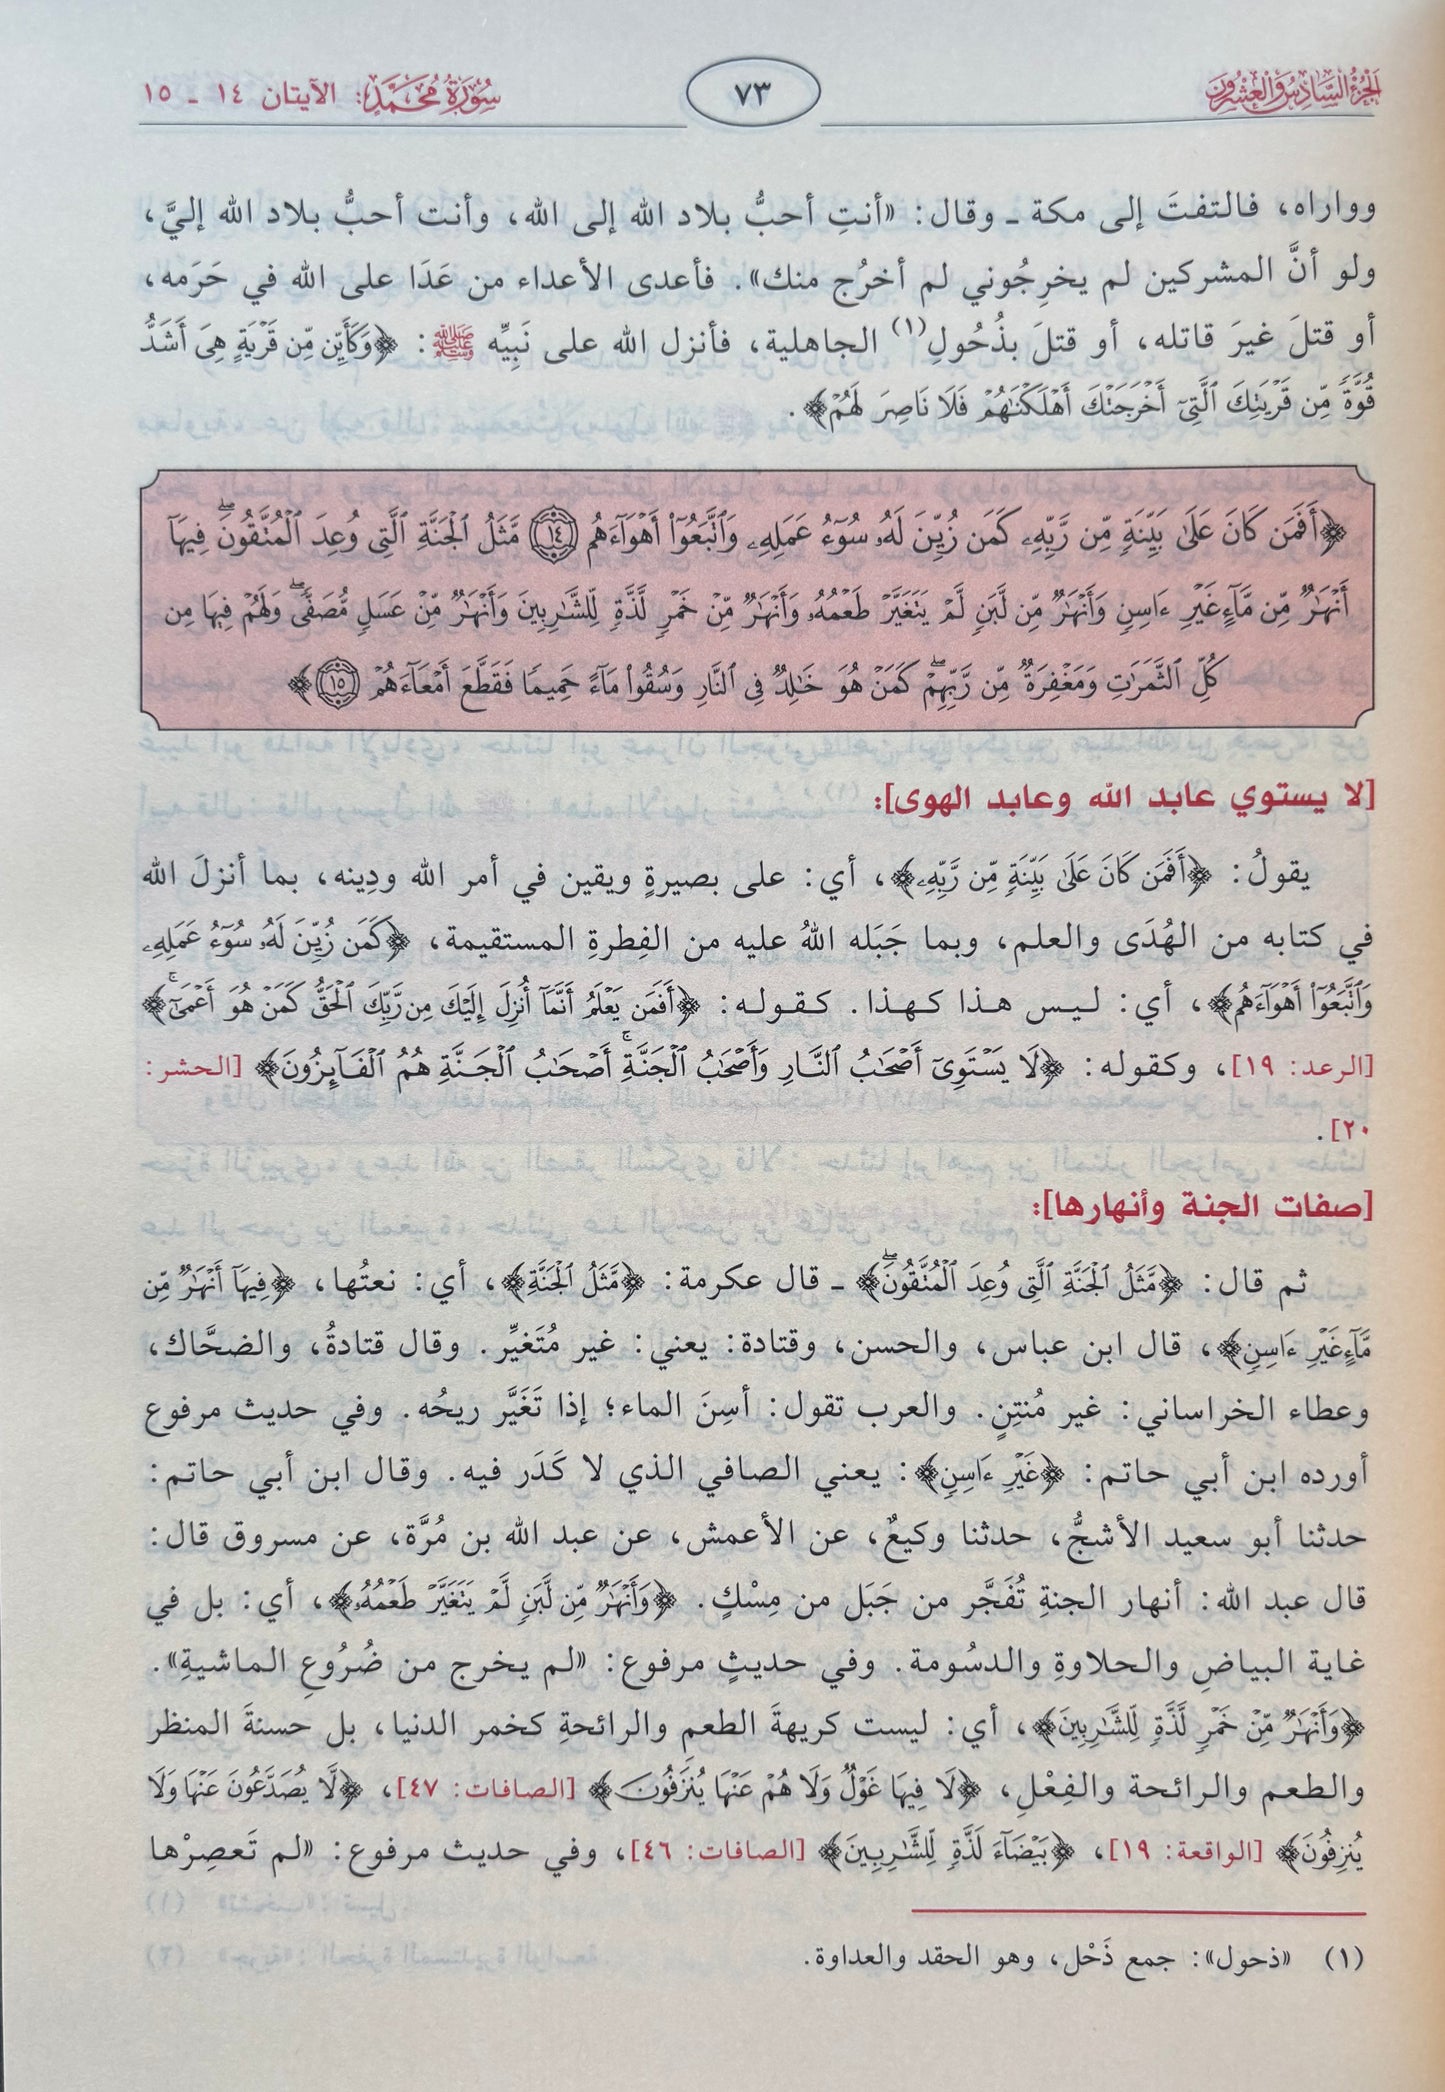 الجزء السادس والعشرون
٧٣
سورة محمد: الآيتان ١٤ ـ ١٥
وواراه، فالتفتَ إلى مكة ـ وقال: «أنتِ أحبُّ بلاد الله إلى الله، وأنت أحبُّ بلاد الله إليَّ،
ولو أنَّ المشركين لم يخرِجُوني لم أخرُج منك». فأعدى الأعداء من عَدَا على الله في حَرَمه،
أو قتلَ غيرَ قاتله، أو قتلَ بذُحُولِ(١) الجاهلية، فأنزل الله على نَبِيِّه ﷺ: ﴿وَكَأَيِّن مِّن قَرْيَةٍ هِيَ أَشَدُّ
قُوَّةً مِّن قَرْيَتِكَ ٱلَّتِيٓ أَخْرَجَتْكَ أَهْلَكْنَٰهُمْ فَلَا نَاصِرَ لَهُمْ﴾.
﴿أَفَمَن كَانَ عَلَىٰ بَيِّنَةٍ مِّن رَّبِّهِۦ كَمَن زُيِّنَ لَهُۥ سُوٓءُ عَمَلِهِۦ وَٱتَّبَعُوٓا۟ أَهْوَآءَهُم ١٤ مَّثَلُ ٱلْجَنَّةِ ٱلَّتِي وُعِدَ ٱلْمُتَّقُونَۖ فِيهَآ
أَنْهَٰرٌ مِّن مَّآءٍ غَيْرِ ءَاسِنٍ وَأَنْهَٰرٌ مِّن لَّبَنٍ لَّمْ يَتَغَيَّرْ طَعْمُهُۥ وَأَنْهَٰرٌ مِّنْ خَمْرٍ لَّذَّةٍ لِّلشَّٰرِبِينَ وَأَنْهَٰرٌ مِّنْ عَسَلٍ مُّصَفًّىۖ وَلَهُمْ فِيهَا مِن
كُلِّ ٱلثَّمَرَٰتِ وَمَغْفِرَةٌ مِّن رَّبِّهِمْۖ كَمَنْ هُوَ خَٰلِدٌ فِي ٱلنَّارِ وَسُقُوا۟ مَآءً حَمِيمًا فَقَطَّعَ أَمْعَآءَهُمْ ١٥﴾
[لا يستوي عابد الله وعابد الهوى]:
يقولُ: ﴿أَفَمَن كَانَ عَلَىٰ بَيِّنَةٍ مِّن رَّبِّهِۦ﴾، أي: على بصيرةٍ ويقين في أمر الله ودِينه، بما أنزلَ الله
في كتابه من الهُدَى والعلم، وبما جَبَله اللهُ عليه من الفِطرةِ المستقيمة، ﴿كَمَن زُيِّنَ لَهُۥ سُوٓءُ عَمَلِهِۦ
وَٱتَّبَعُوٓا۟ أَهْوَآءَهُم﴾، أي: ليس هذا كهذا. كقوله: ﴿أَفَمَن يَعْلَمُ أَنَّمَآ أُنزِلَ إِلَيْكَ مِن رَّبِّكَ ٱلْحَقُّ كَمَنْ هُوَ أَعْمَىٰٓۚ﴾
[الرعد: ١٩]، وكقوله: ﴿لَا يَسْتَوِيٓ أَصْحَٰبُ ٱلنَّارِ وَأَصْحَٰبُ ٱلْجَنَّةِۚ أَصْحَٰبُ ٱلْجَنَّةِ هُمُ ٱلْفَآئِزُونَ﴾ [الحشر:
٢٠].
[صفات الجنة وأنهارها]:
ثم قال: ﴿مَّثَلُ ٱلْجَنَّةِ ٱلَّتِي وُعِدَ ٱلْمُتَّقُونَۖ﴾ ـ قال عكرمة: ﴿مَّثَلُ ٱلْجَنَّةِ﴾، أي: نعتُها، ﴿فِيهَآ أَنْهَٰرٌ مِّن
مَّآءٍ غَيْرِ ءَاسِنٍ﴾، قال ابن عباس، والحسن، وقتادة: يعني: غير مُتَغيِّر. وقال قتادةُ، والضحَّاك،
وعطاء الخراساني: غير مُنتِنٍ. والعرب تقول: أسِنَ الماء؛ إذا تَغَيَّر ريحُه. وفي حديث مرفوع
أورده ابن أبي حاتم: ﴿غَيْرِ ءَاسِنٍ﴾: يعني الصافي الذي لا كَدَر فيه. وقال ابن أبي حاتم:
حدثنا أبو سعيد الأشجُّ، حدثنا وكيعٌ، عن الأعمش، عن عبد الله بن مُرَّة، عن مسروق قال:
قال عبد الله: أنهار الجنةِ تُفَجَّر من جَبَل من مِسْكٍ. ﴿وَأَنْهَٰرٌ مِّن لَّبَنٍ لَّمْ يَتَغَيَّرْ طَعْمُهُۥ﴾، أي: بل في
غاية البياضِ والحلاوةِ والدسُومة. وفي حديثٍ مرفوع: «لم يخرج من ضُرُوعِ الماشيةِ».
﴿وَأَنْهَٰرٌ مِّنْ خَمْرٍ لَّذَّةٍ لِّلشَّٰرِبِينَ﴾، أي: ليست كريهةَ الطعم والرائحةِ كخمر الدنيا، بل حسنةَ المنظر
والطعم والرائحة والفِعْلِ، ﴿لَا فِيهَا غَوْلٌ وَلَا هُمْ عَنْهَا يُنزَفُونَ﴾ [الصافات: ٤٧]، ﴿لَّا يُصَدَّعُونَ عَنْهَا وَلَا
يُنزِفُونَ﴾ [الواقعة: ١٩]، ﴿بَيْضَآءَ لَذَّةٍ لِّلشَّٰرِبِينَ﴾ [الصافات: ٤٦]، وفي حديث مرفوع: «لم تَعصِرْها
(١) «ذحول»: جمع ذَحْل، وهو الحقد والعداوة.